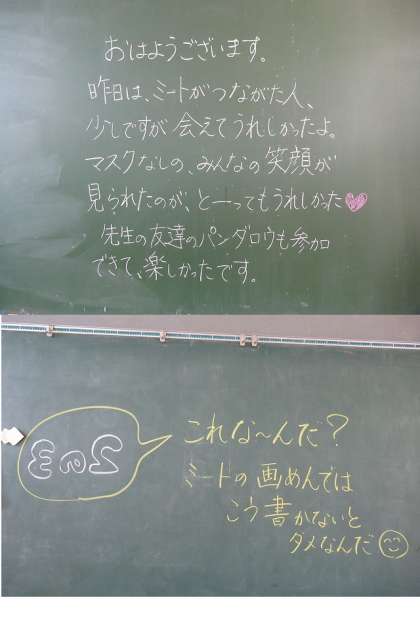 おはようございます。
昨日は、ミートがつながた人、
少しですが会えてうれしかったよ。
マスクなしの、みんなの笑顔が
見られたのが、とーってもうれしかった
先生の友達のパンダロウも参加
できて、楽しかったです。
2の3
これな〜んだ?
ミートの画めんでは
こう書かないと
ダメなんだ